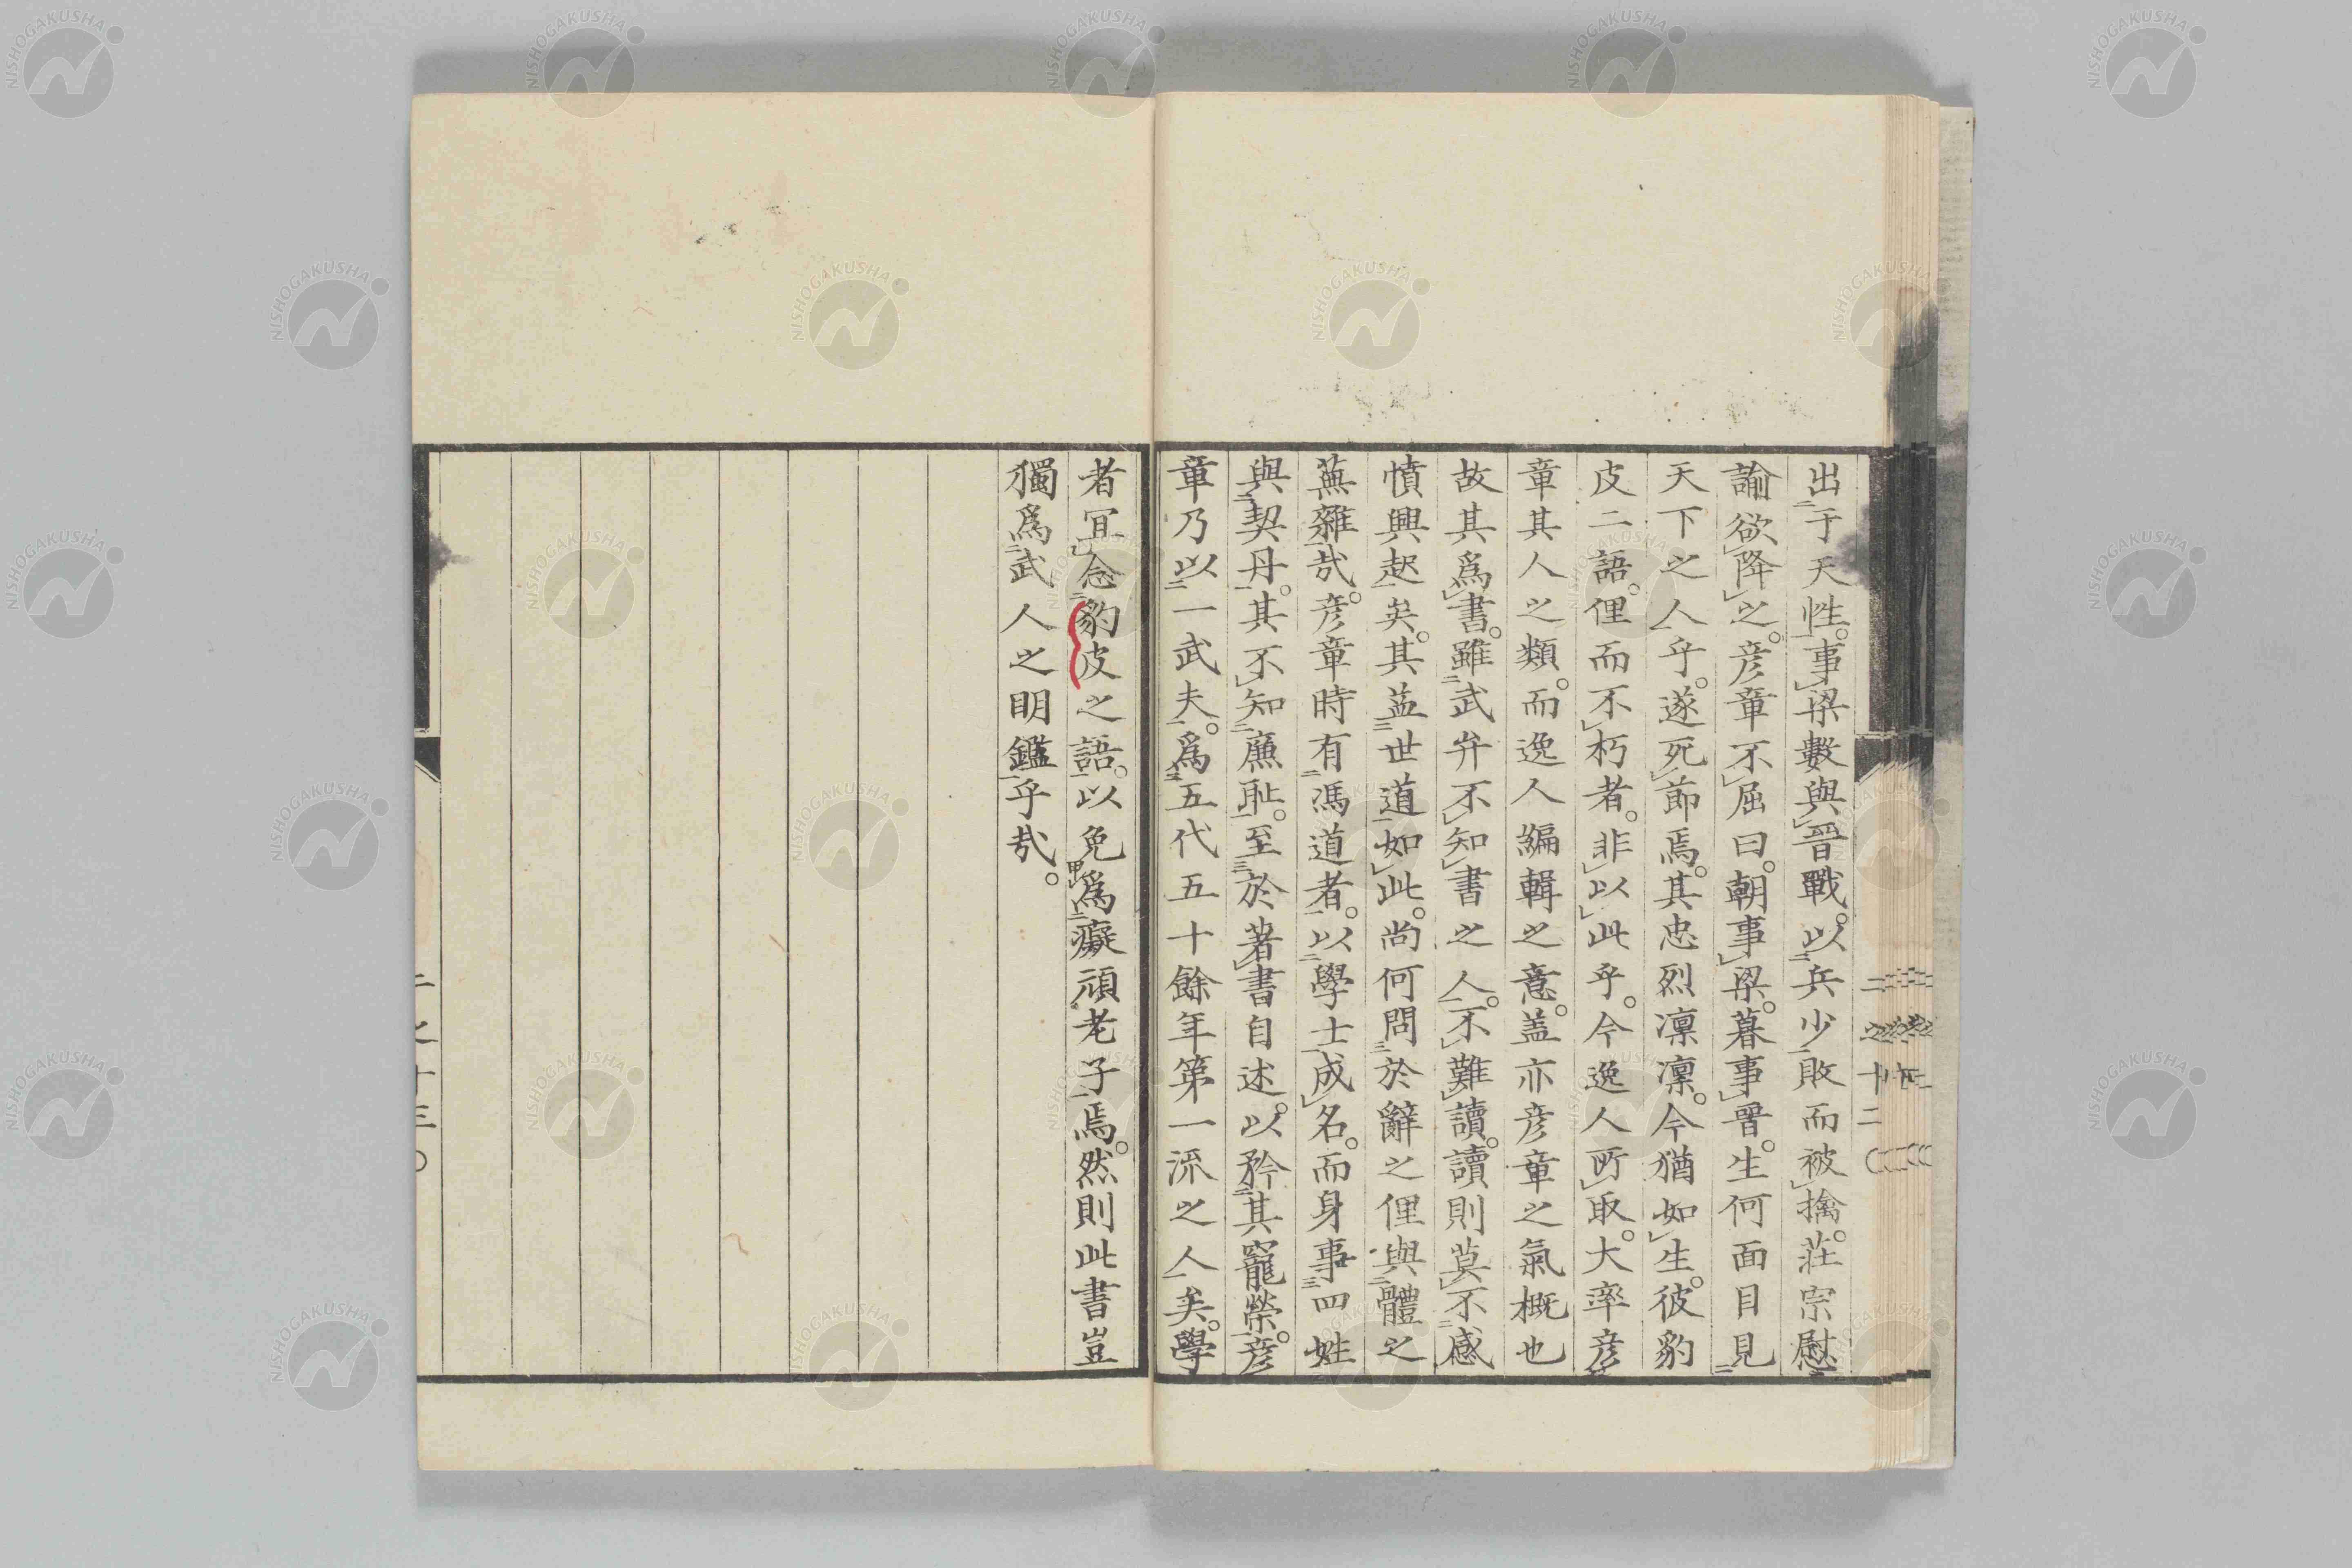 出于天性。事梁數與晉戰。以兵少敗而被擒。莊宗慰
諭欲降之。彦章不屈曰。朝事梁。暮事晉。生何面目見
天下之人乎。遂死節焉。其忠烈凛凛。今猶如生。彼豹
皮二語。俚而不朽者。非以此乎。今逸人所取。大率彦
章其人之類。而逸人編輯之意。盖亦彦章之氣概也
故其爲書。雖武弁不知書之人。不難讀。讀則莫不感
憤興起矣。其益世道如此。尚何問於辭之俚與體之
蕪雜哉。彦章時有馮道者。以學士成名。而身事四姓
與契丹。其不知廉耻。至於著書自述。以矜其寵榮。彦
章乃以一武夫。爲五代五十餘年第一流之人矣。學
二之十二
者冝念豹皮之語。以免爲癡頑老子焉。然則此書豈
獨爲武人之明鑑乎哉。
二之十三
NISHOGAKUSHA